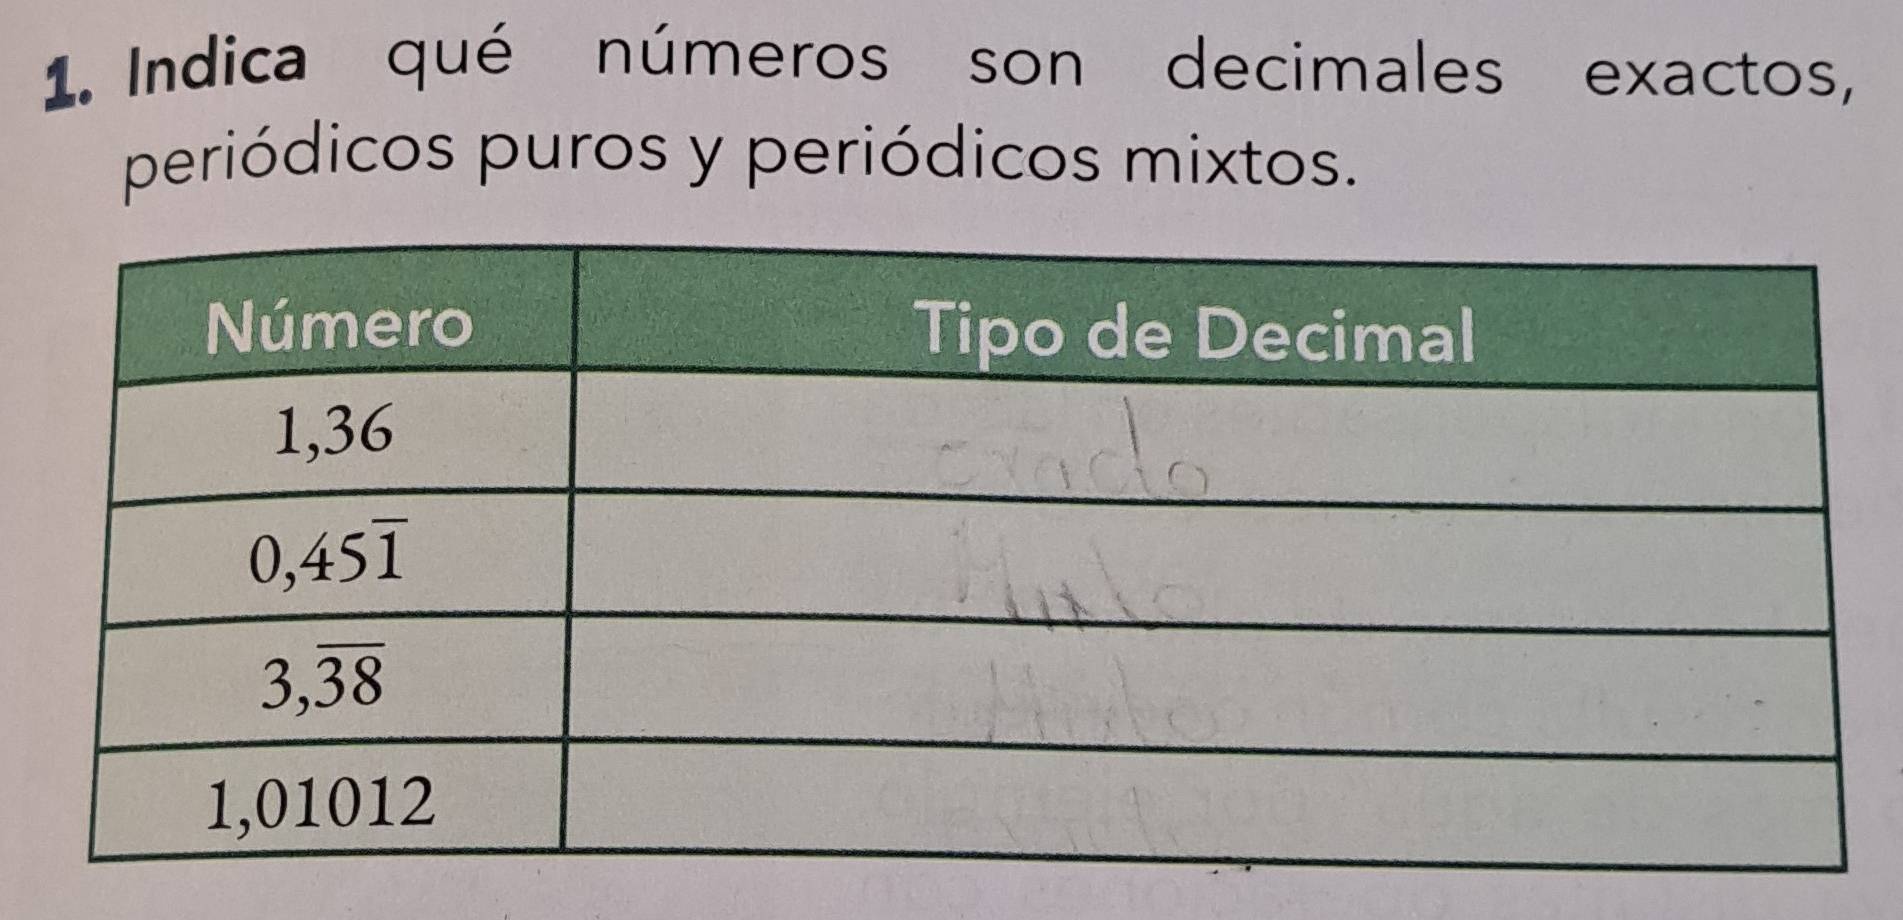 1. Indica qué números son decimales exactos,
periódicos puros y periódicos mixtos.
Número Tipo de Decimal
1,36 exacto
0,451̅ Mixto
3,3̅8̅ Mixto
1,01012